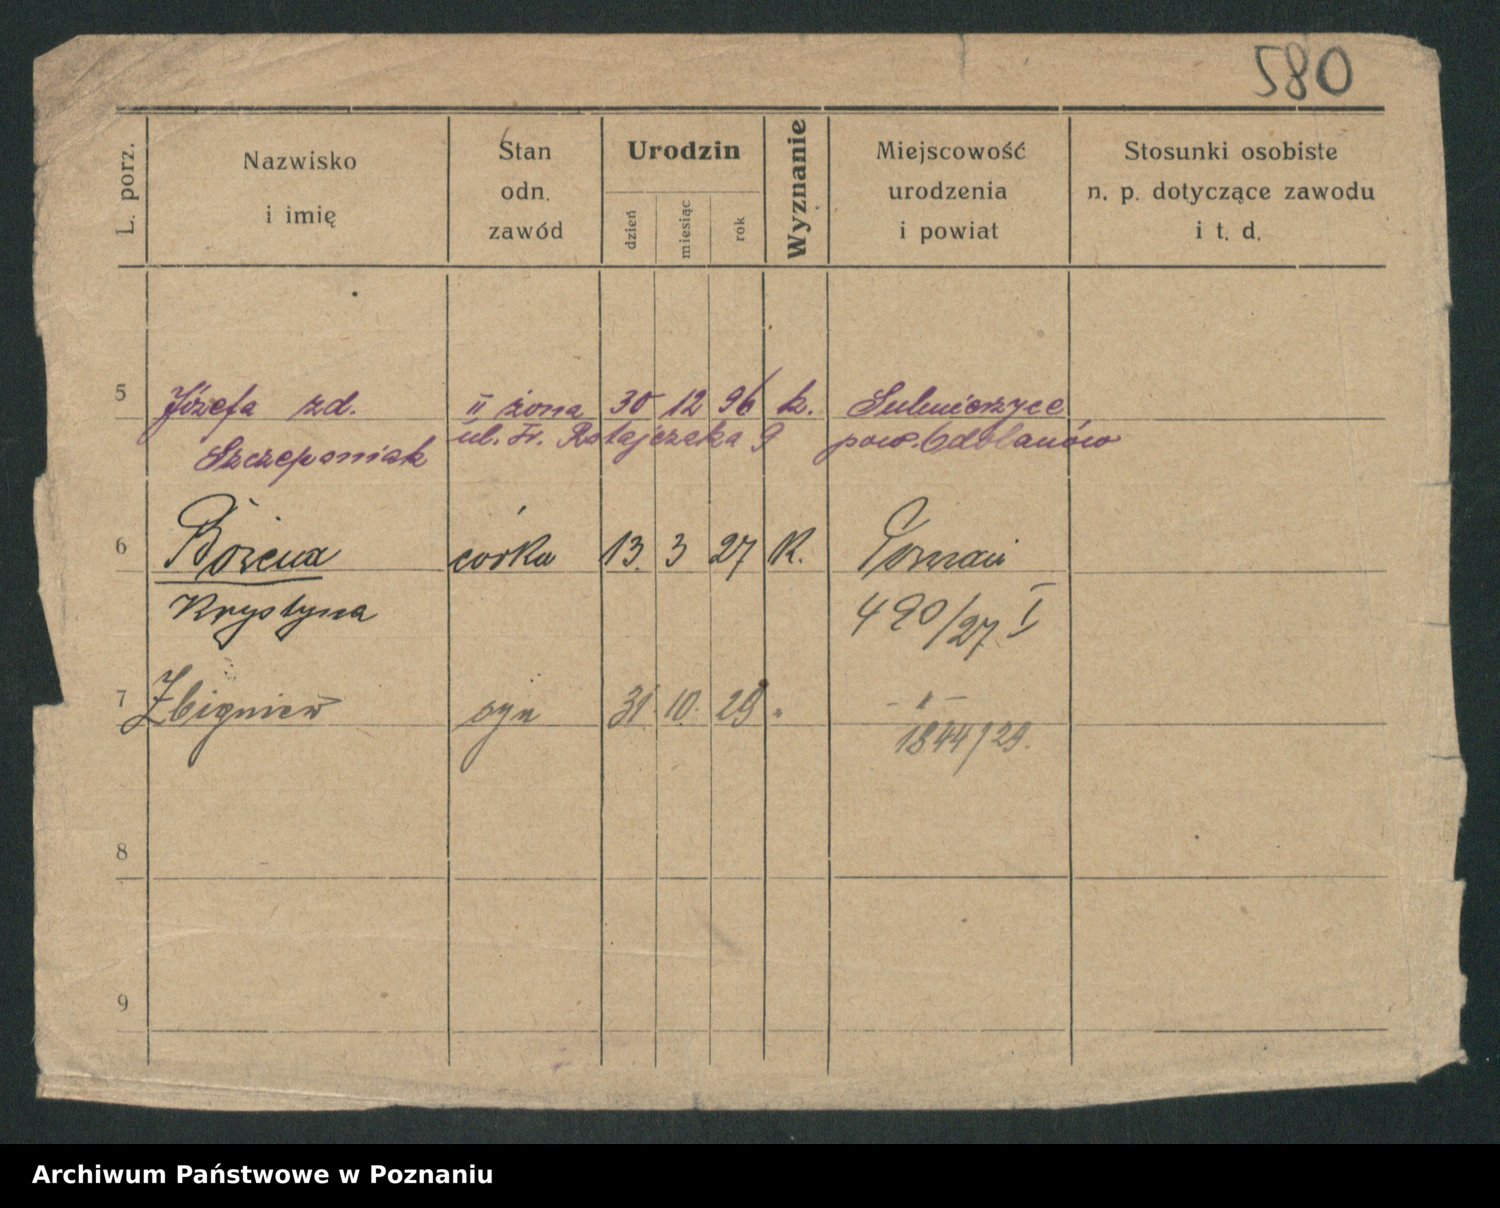 580
L. porz.
Nazwisko
i imię
Stan
odn.
zawód
Urodzin
dzień
miesiąc
rok
Wyznanie
Miejscowość
urodzenia
i powiat
Stosunki osobiste
n. p. dotyczące zawodu
i t. d.
5 Józefa zd. II żona 30 12 96 k. Sulmierzyce
Szczepaniak ul. Fr. Ratajczaka 9 pow. Odolanów
6 Bożena córka 13. 3 27 K. Poznań
Krystyna 490/27 I
7 Zbigniew syn 31. 10. 29 " - " -
1844/29.
8
9
Archiwum Państwowe w Poznaniu